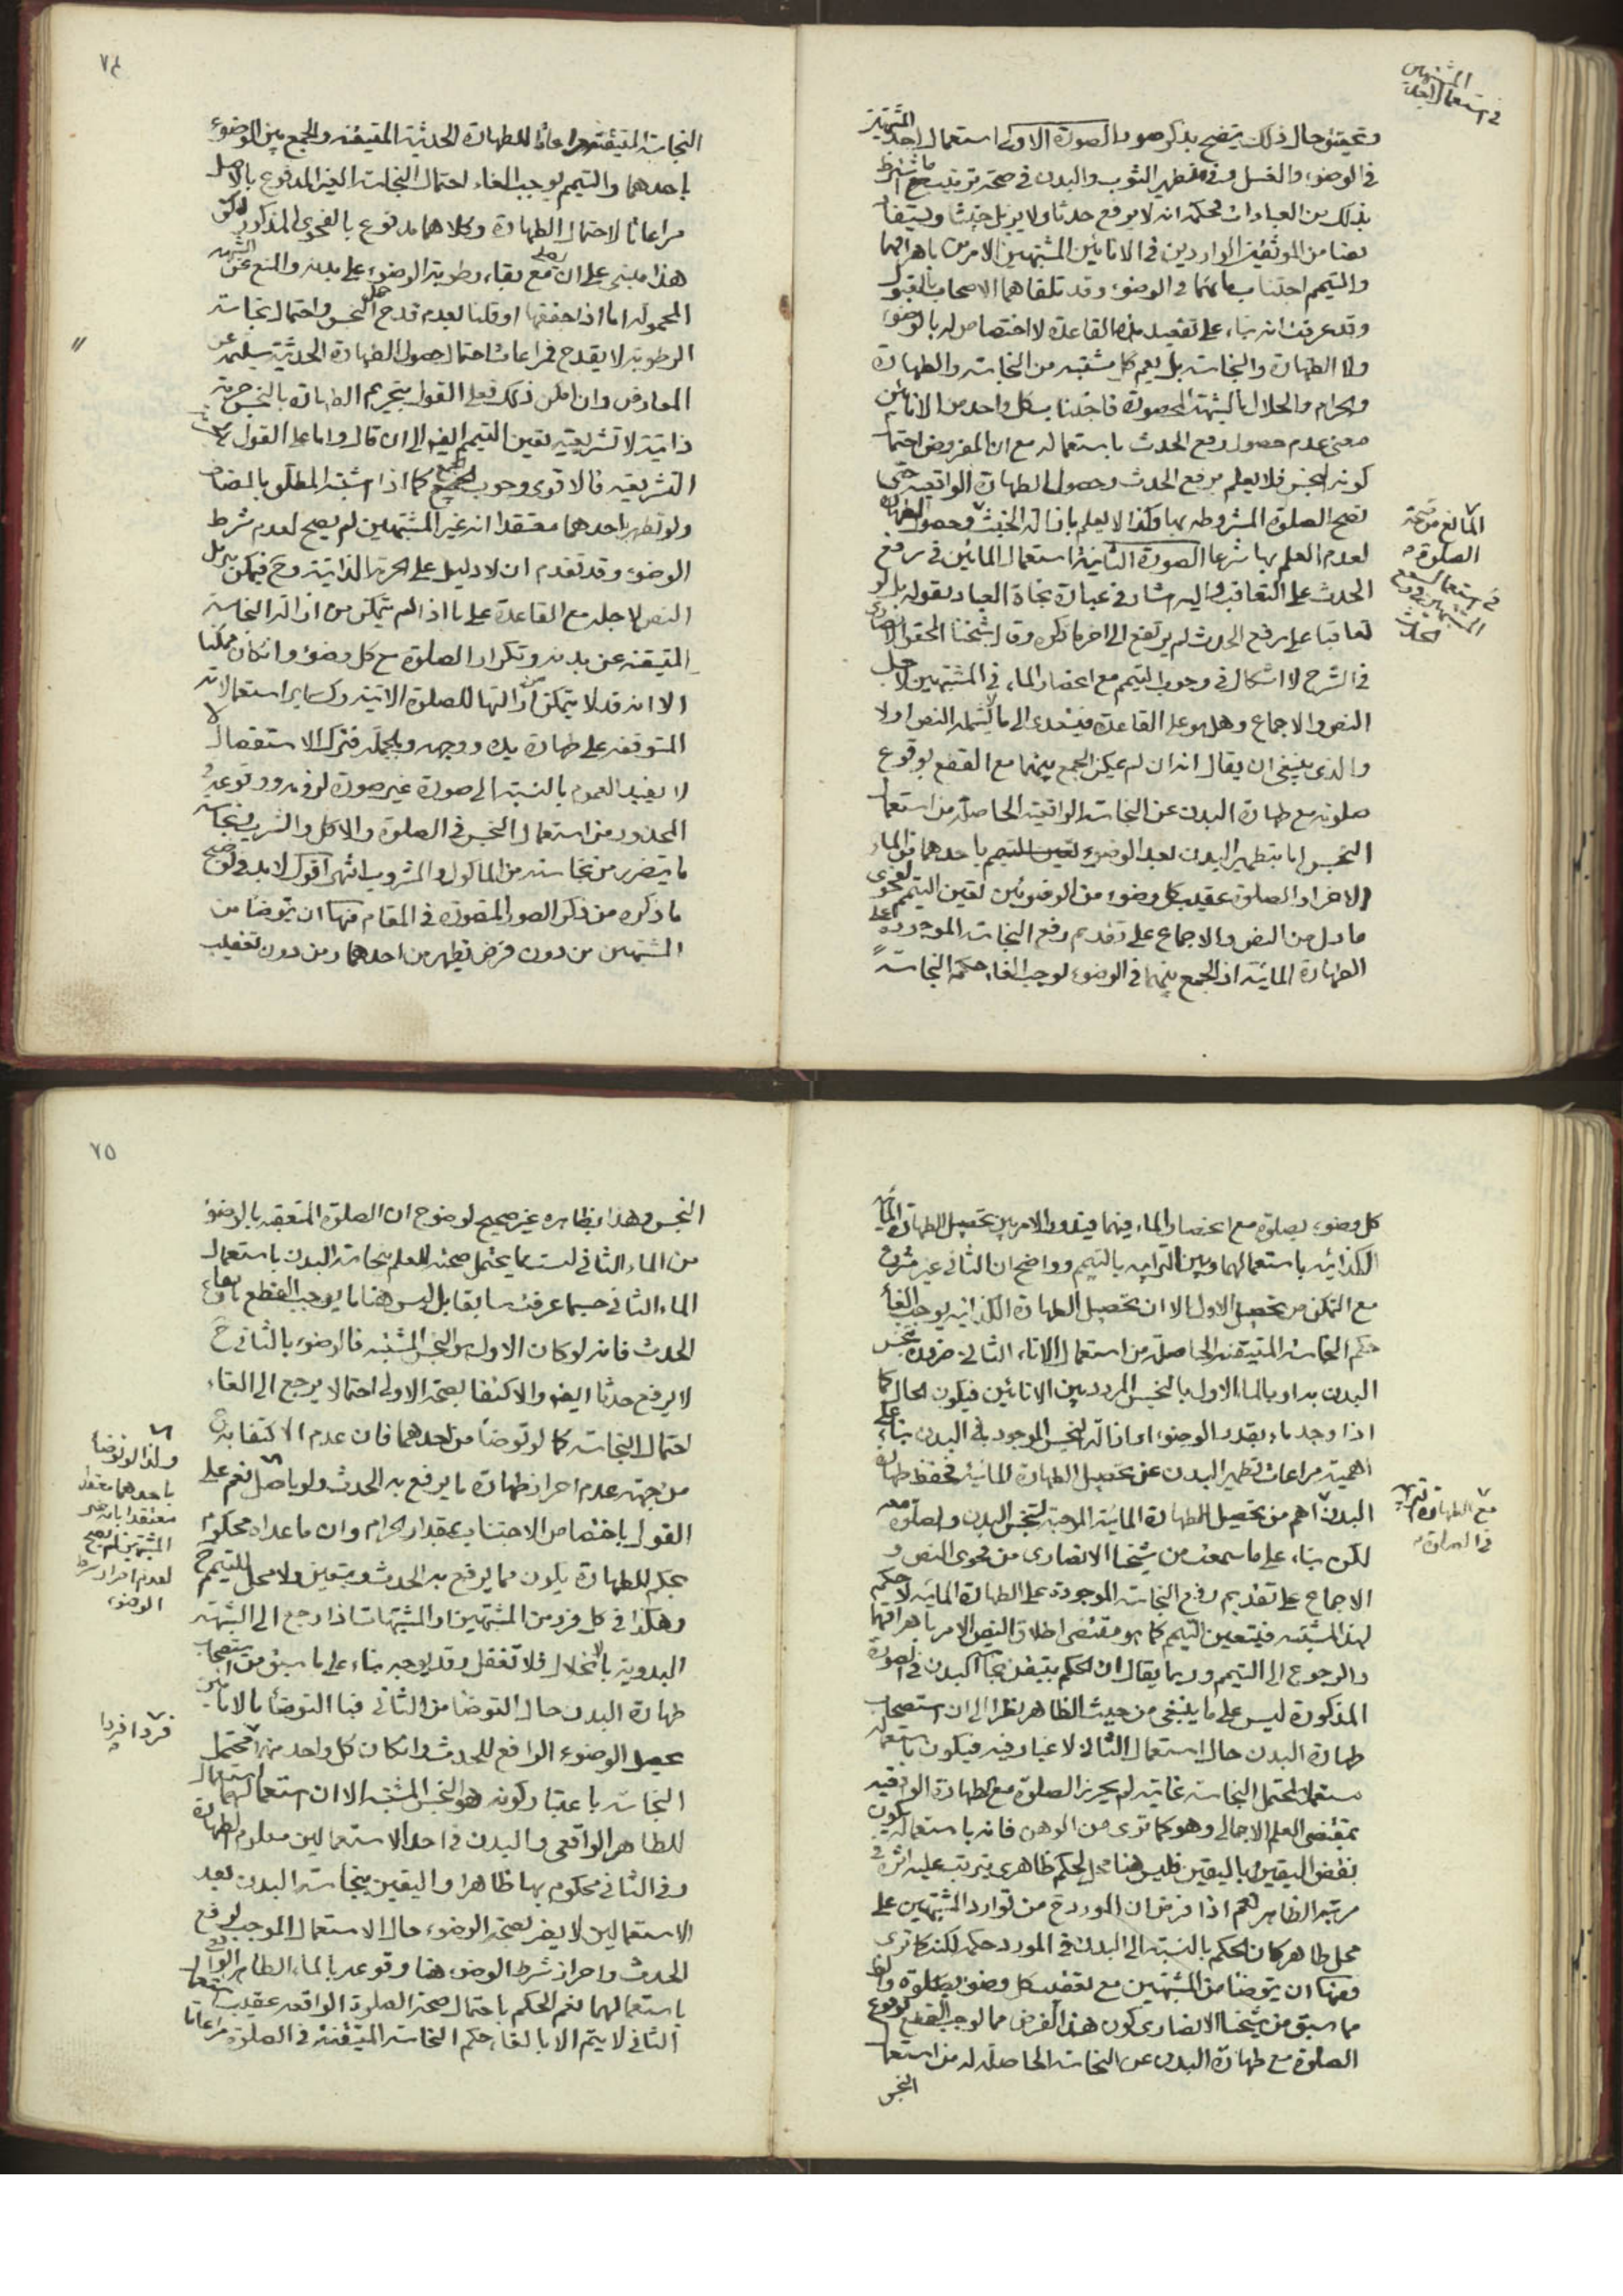 المشتبهين
في استعمال احد
وتحقيق حال ذلك يتضح بذكر صور الصورة الاولى استعمال احد المشتبهين
في الوضوء والغسل وفي تطهير الثوب والبدن في صحة ترتيب ما شرط
بذلك من العبادات فحكمه انه لا يرفع حدثا ولا يزيل خبثا ويستفاد
بعضا من الموثقين الواردين في الانائين المشتبهين الامرين باهراقهما
والتيمم اجتنابهما في الوضوء وقد تلقاهما الاصحاب بالقبول
وقد عرفت انه بناء على تقعيد هذه القاعدة لا اختصاص له بالوضوء
ولا الطهارة والنجاسة بل يعم كل مشتبه من النجاسة والطهارة
والحرام والحلال بالشبهة المحصورة فاجتناب كل واحد من الانائين
معنى عدم حصول رفع الحدث باستعماله مع ان المفروض احتمال
كونه النجس فلا يعلم برفع الحدث وحصول الطهارة الواقعية حتى
تصح الصلوة المشروطة بها وكذا لا يعلم بازالة الخبث وحصول الطهارة
المانع من صحة
الصلوة
لعدم العلم بها شرعا الصورة الثانية استعمال المائين في رفع
في استعمال
المشتبهين في رفع
الحدث
الحدث على التعاقب واليه اشار في عبارة نجاة العباد بقوله بل لو
تعاقبا على رفع الحدث لم يرتفع الى اخر ما ذكره وقال شيخنا المحقق الانصاري
في الشرح لا اشكال في وجوب التيمم مع انحصار الماء في المشتبهين لاجل
النص والاجماع وهل هو على القاعدة فيتعدى الى ما لا يشمله النص اولا
والذي ينبغي ان يقال انه ان لم يمكن الجمع بينهما مع القطع بوقوع
صلوته مع طهارة البدن عن النجاسة الواقعية الحاصلة من استعمال
النجس اما بتطهير البدن بعد الوضوء باحدهما من الماء
الاخر او الصلوة عقيب كل وضوء من الوضوئين تعين التيمم لفحوى
ما دل من النص والاجماع على تقديم رفع النجاسة الموجودة على
الطهارة المائية اذ الجمع بينهما في الوضوء يوجب الغاء حكم النجاسة
٧٤
النجاسة المتيقنة مراعاتا للطهارة الحدثية المتيقنة والجمع بين الوضوء
باحدهما والتيمم يوجب الغاء احتمال النجاسة الغير المدفوع بالاصل
مراعاتا لاحتمال الطهارة وكلاهما مدفوع بالفحوى المذكور لكن
هذا مبني على ان يصلي مع بقاء رطوبة الوضوء على بدنه والمنع عن
المحمولة اما اذا جففها او قلنا بعدم قدح حمل النجس واحتمال نجاسة
الرطوبة لا يقدح فمراعات احتمال حصول الطهارة الحدثية سليمة عن
المعارض وان امكن ذلك فعلى القول بتحريم الطهارة بالنجس حرمة
ذاتية لا تشريعية تعين التيمم ايضا الى ان قال واما على القول
التشريعية فالاقوى وجوب الجمع كما اذا اشتبه المطلق بالمضاف
ولو تطهر باحدهما معتقدا انه غير المشتبهين لم يصح لعدم شرط
الوضوء وقد تقدم ان لا دليل على الحرمة الذاتية وح فيمكن تنزيل
النص لاجله مع القاعدة على ما اذا لم يتمكن من ازالة النجاسة
المتيقنة عن بدنه وتكرار الصلوة مع كل وضوء وان كان ممكنا
الا انه قد لا يتمكن من ازالتها للصلوة الاتية وكساير استعمالاته
المتوقفة على طهارة يده ووجهه وبالجملة فترك الاستفصال
لا يفيد العموم بالنسبة الى صورة غير صورة لزوم
المحذور من استعمال النجس في الصلوة والاكل والشرب ونجاسة
ما يتضرر من نجاسته من الماكول والمشروب انتهى اقول لا بد
ما ذكره من ذكر الصور المتصورة في المقام فمنها ان يتوضأ من
المشتبهين من دون فرض تطهير من احدهما ومن دون تعقيب
كل وضوء بصلوة مع انحصار الماء فيهما فيدور الامر بين تحصيل الطهارة المائية
الكذائية باستعمالهما وبين الترابية بالتيمم وواضح ان الثاني غير مشروع
مع التمكن من تحصيل الاول الا ان تحصيل الطهارة الكذائية يوجب الغاء
حكم النجاسة المتيقنة الحاصلة من استعمال الاناء الثاني ضرورة تنجس
البدن به او بالماء الاول بالنجس المردد بين الانائين فيكون الحال كما
اذا وجد ماء بقدر الوضوء او ازالة النجس الموجود في البدن بناء على
اهمية مراعات تطهير البدن عن تحصيل الطهارة المائية فحفظ طهارة
البدن اهم من تحصيل الطهارة المائية الموجبة لتنجس البدن والصلوة معه
في الصلوة
لكن بناء على ما سمعت من شيخنا الانصاري من فحوى النص و
الاجماع على تقديم رفع النجاسة الموجودة على الطهارة المائية لا حكم
لهذا المشتبه فيتعين التيمم كما هو مقتضى اطلاق النص الامر باهراقهما
والرجوع الى التيمم وربما يقال ان الحكم بتيقن نجاسة البدن في الصورة
المذكورة ليس على ما ينبغي من حيث الظاهر نظرا الى ان استصحاب
طهارة البدن حال استعمال الثاني لا غبار فيه فيكون باستعماله
مستعملا لمحتمل النجاسة غايته لم يحرز الصلوة مع الطهارة الواقعية
بمقتضى العلم الاجمالي وهو كما ترى من الوهن فانه باستعماله يكون
نقض اليقين باليقين فليس هنا محل لحكم ظاهري يترتب عليه اثره في
مرتبة الظاهر نعم اذا فرض ان المورد ح من توارد المشتبهين على
محل طاهر كان الحكم بالنسبة الى البدن في المورد حكمه لكنه كما ترى
ومنها ان يتوضأ من المشتبهين مع تعقيب كل وضوء بصلوة وقد
مما سبق من شيخنا الانصاري كون هذا الفرض مما يوجب القطع بوقوع
الصلوة مع طهارة البدن عن النجاسة الحاصلة له من استعمال
النجس
٧٥
النجس وهذا بظاهره غير صحيح لوضوح ان الصلوة المتعقبة بالوضوء
من الماء الثاني ليست مما يحتمل صحته للعلم بنجاسة البدن باستعمال
الماء الثاني حسبما عرفت سابقا بل ليس هنا ما يوجب القطع بارتفاع
الحدث فانه لو كان الاول هو النجس المشتبه فالوضوء بالثاني ح
لا يرفع حدثا ايضا والاكتفا بصحة الاولى احتمالا يرجع الى الغاء
احتمال النجاسة كما لو توضأ من احدهما فان عدم الاكتفا به
من جهة عدم احراز طهارة ما يرفع به الحدث ولو بالاصل نعم على
ولذا لو توضأ
باحدهما
معتقدا بانه غير
المشتبهين لم يصح
لعدم احراز شرط
الوضوء
القول باختصاص الاجتناب بمقدار الحرام وان ما عداه محكوم
بحكم الطهارة يكون مما يرفع به الحدث ويتعين ولا محل للتيمم ح
وهكذا في كل فرد من المشتبهين او المشتبهات اذا رجع الى الشبهة
البدوية بالانحلال فلا تغفل وقد يوجه بناء على ما سبق من استصحاب
طهارة البدن حال التوضأ من الثاني فبالتوضأ بالانائين
فردا فردا
يحصل الوضوء الرافع للحدث وان كان كل واحد منهما محتمل
النجاسة باعتبار كونه هو النجس المشتبه الا ان استعمالهما استعمال
للطاهر الواقعي والبدن في احد الاستعمالين معلوم الطهارة
وفي الثاني محكوم بها ظاهرا واليقين بنجاسة البدن بعد
الاستعمالين لا يضر بصحة الوضوء حال الاستعمال الموجب لرفع
الحدث واحراز شرط الوضوء هنا وقوعه بالماء الطاهر الواقعي
باستعمالهما نعم الحكم باحتمال صحة الصلوة الواقعة عقيب استعمال
الثاني لا يتم الا بالغاء حكم النجاسة المتيقنة في الصلوة مراعاتا